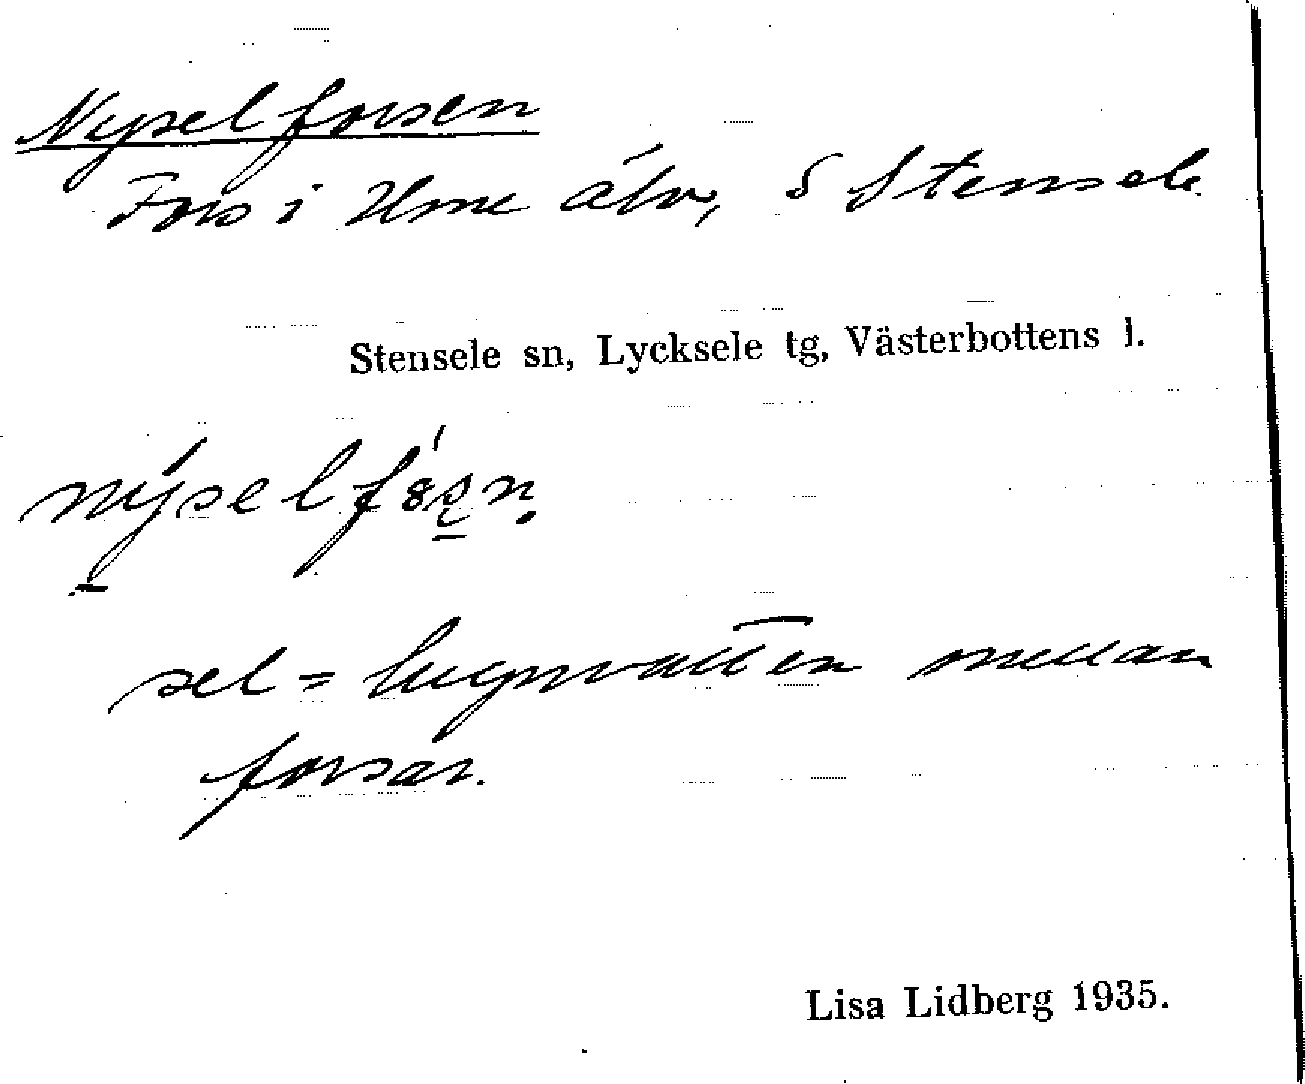 Nyselforsen
Fors i Ume älv, S Stensele
Stensele sn, Lycksele tg, Västerbottens l.
sel = lugnvatten mellan
forsar.
Lisa Lidberg 1935.